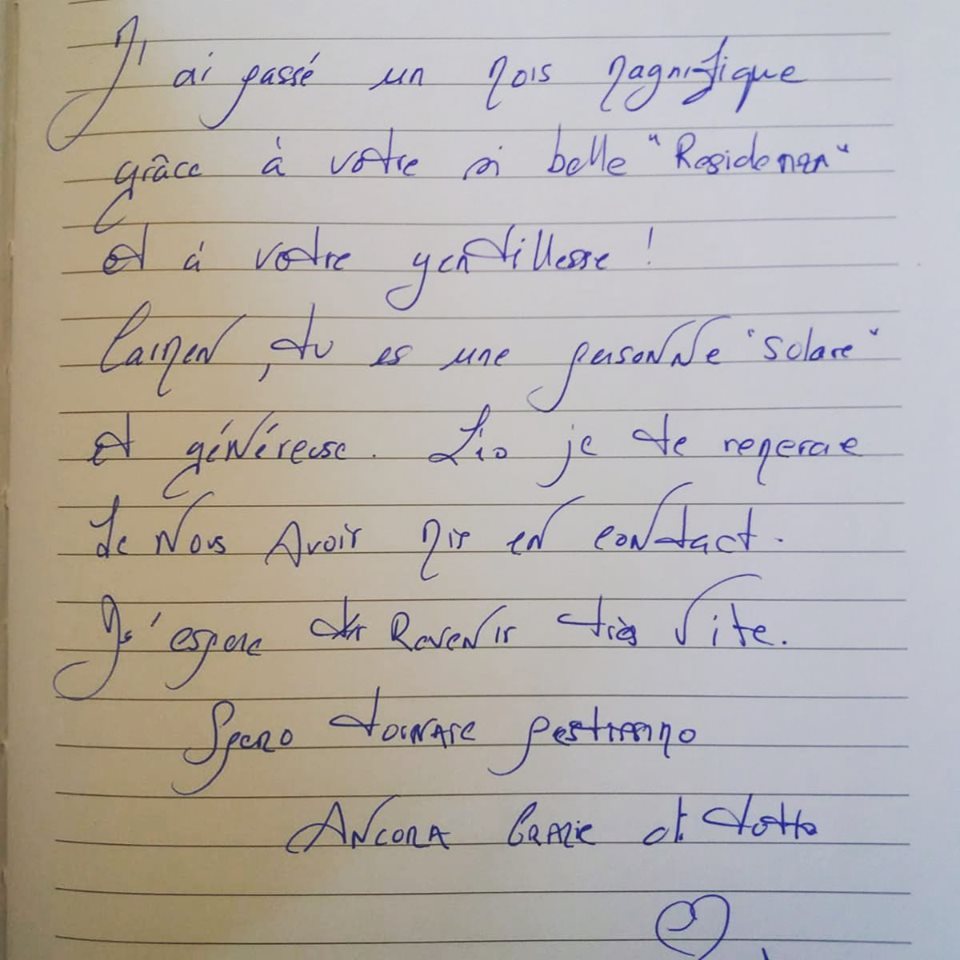 J'ai passé un mois magnifique
grâce à votre si belle "Residenza"
et à votre gentillesse !
Carmen, tu es une personne "solare"
et généreuse. Lio je te remercie
de nous avoir mis en contact.
J'espère revenir très vite.
Spero tornare prestissimo
Ancora Grazie di tutto